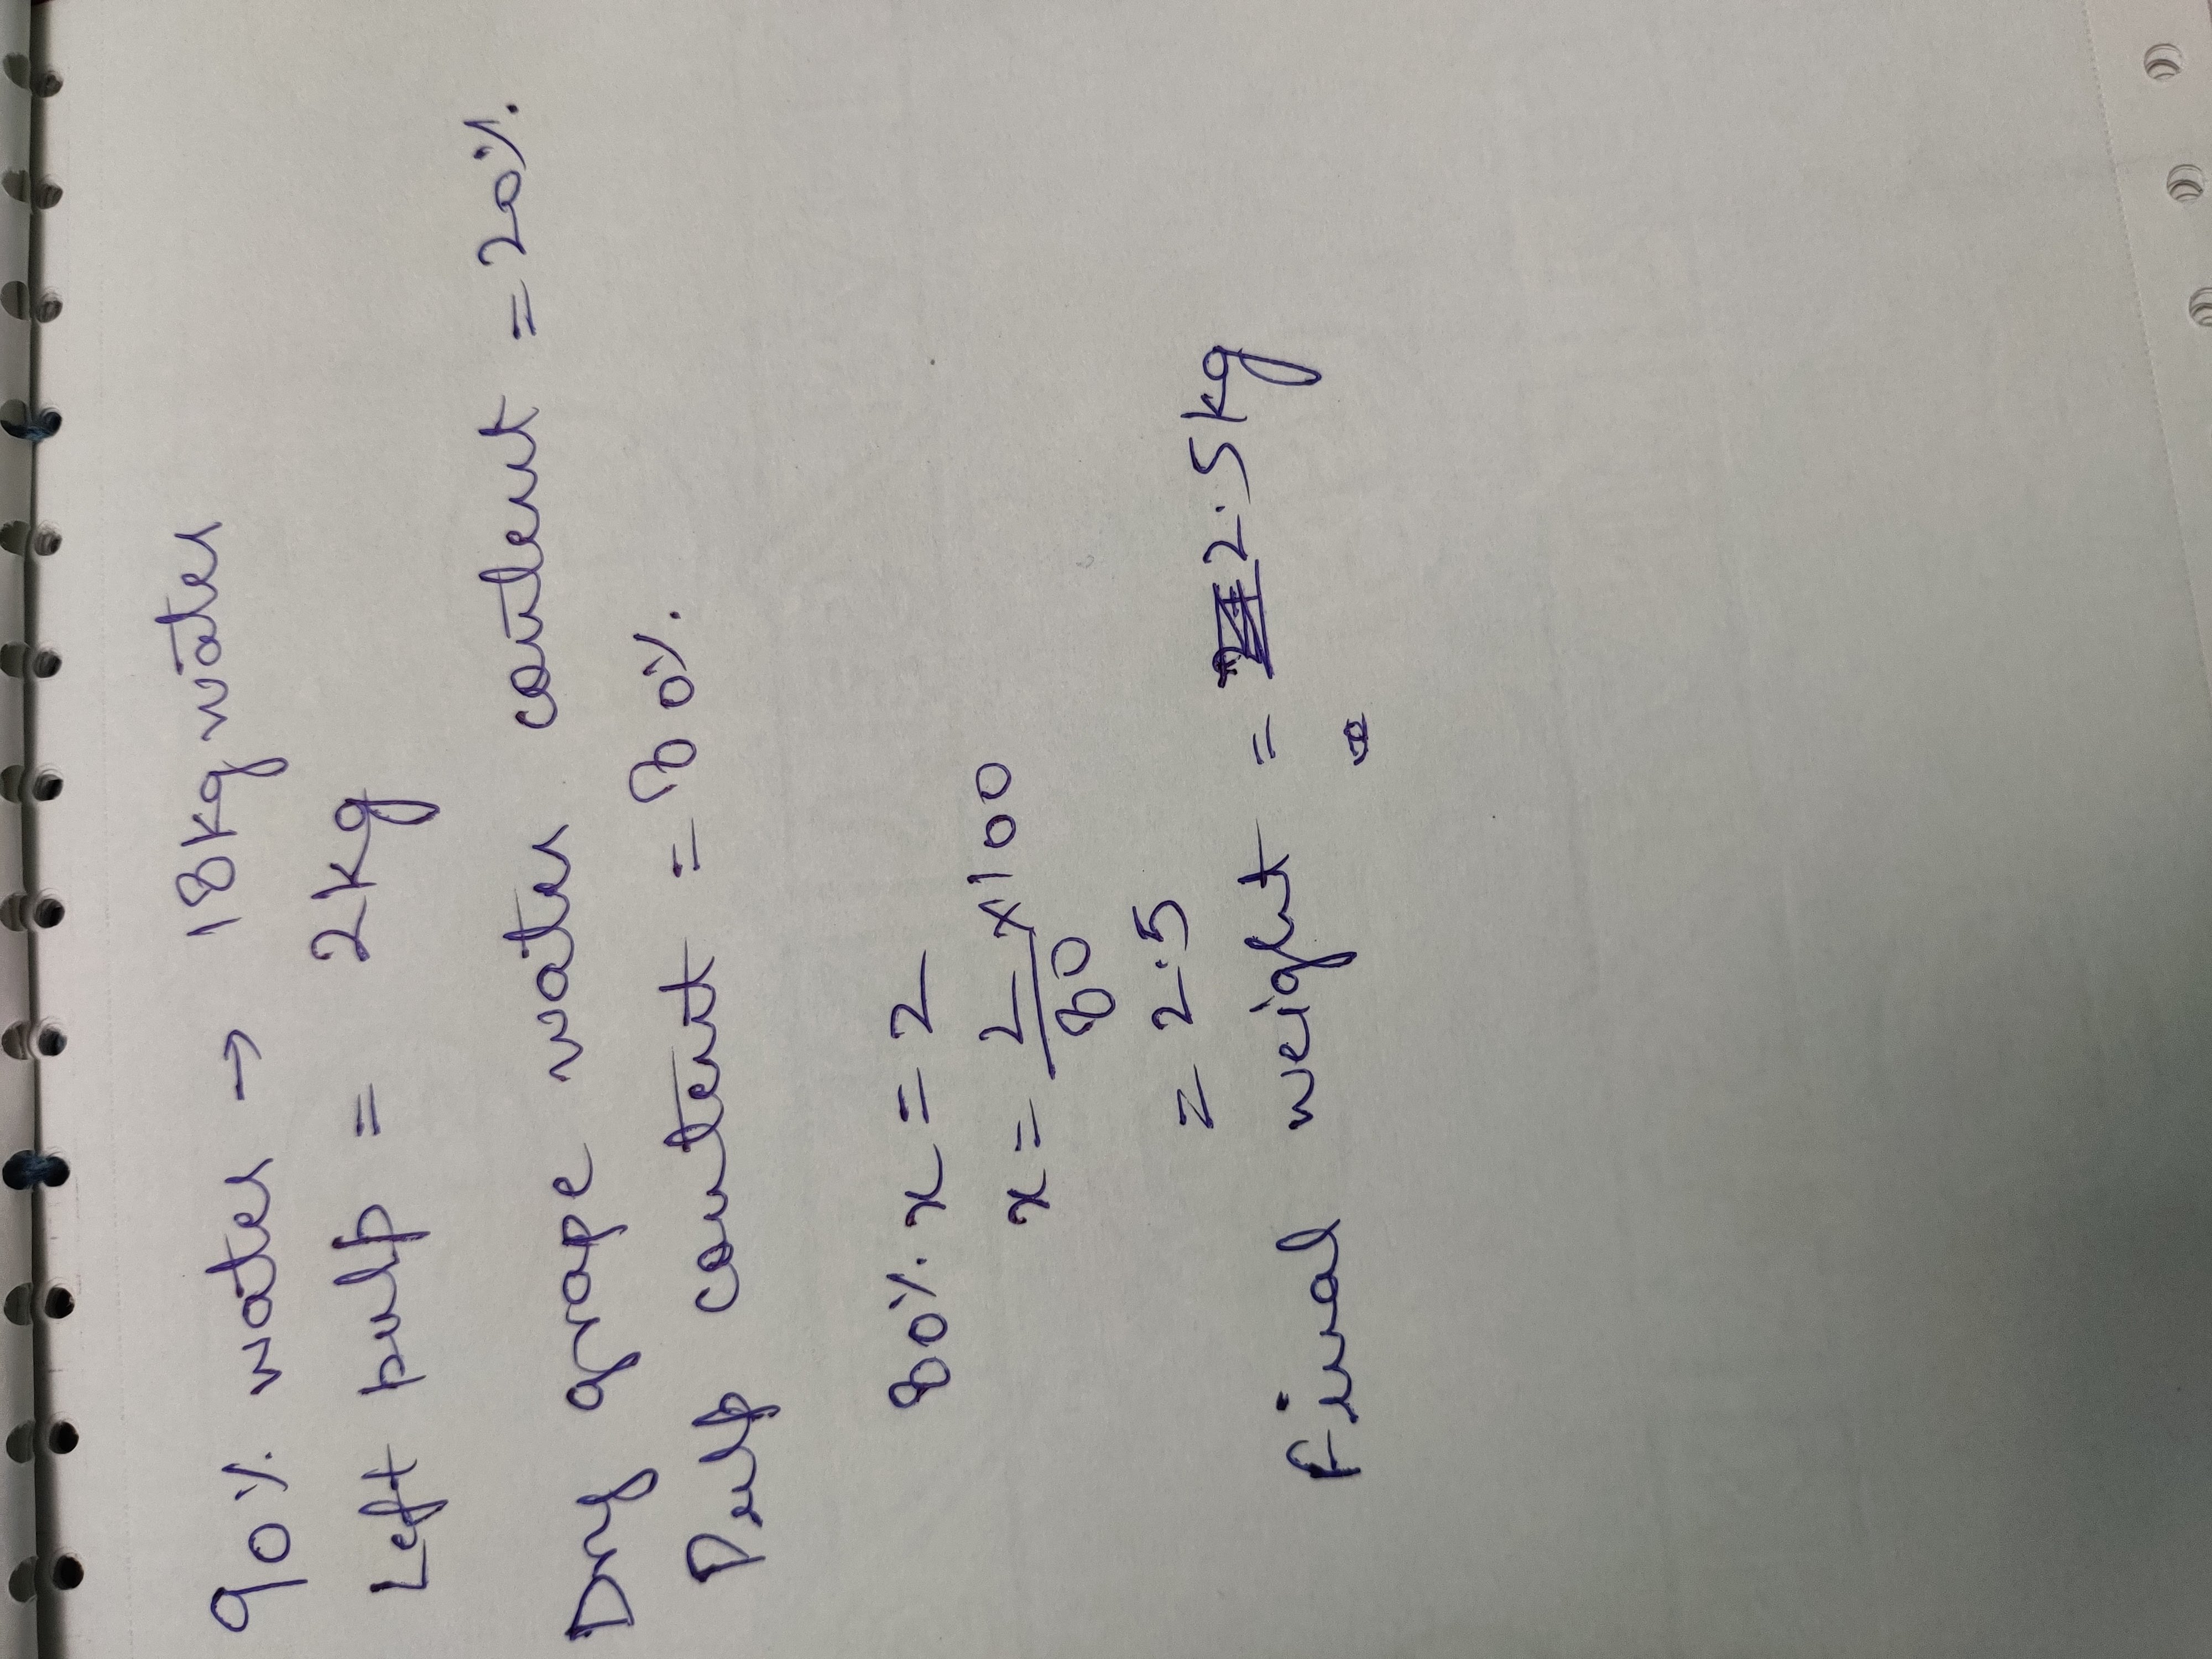 90% water → 18kg water
Left pulp = 2kg
Dry grape water content = 20%.
Pulp content = 80%.
80% x = 2
x = 2/80 x 100
= 2.5
Final weight = 2.5kg